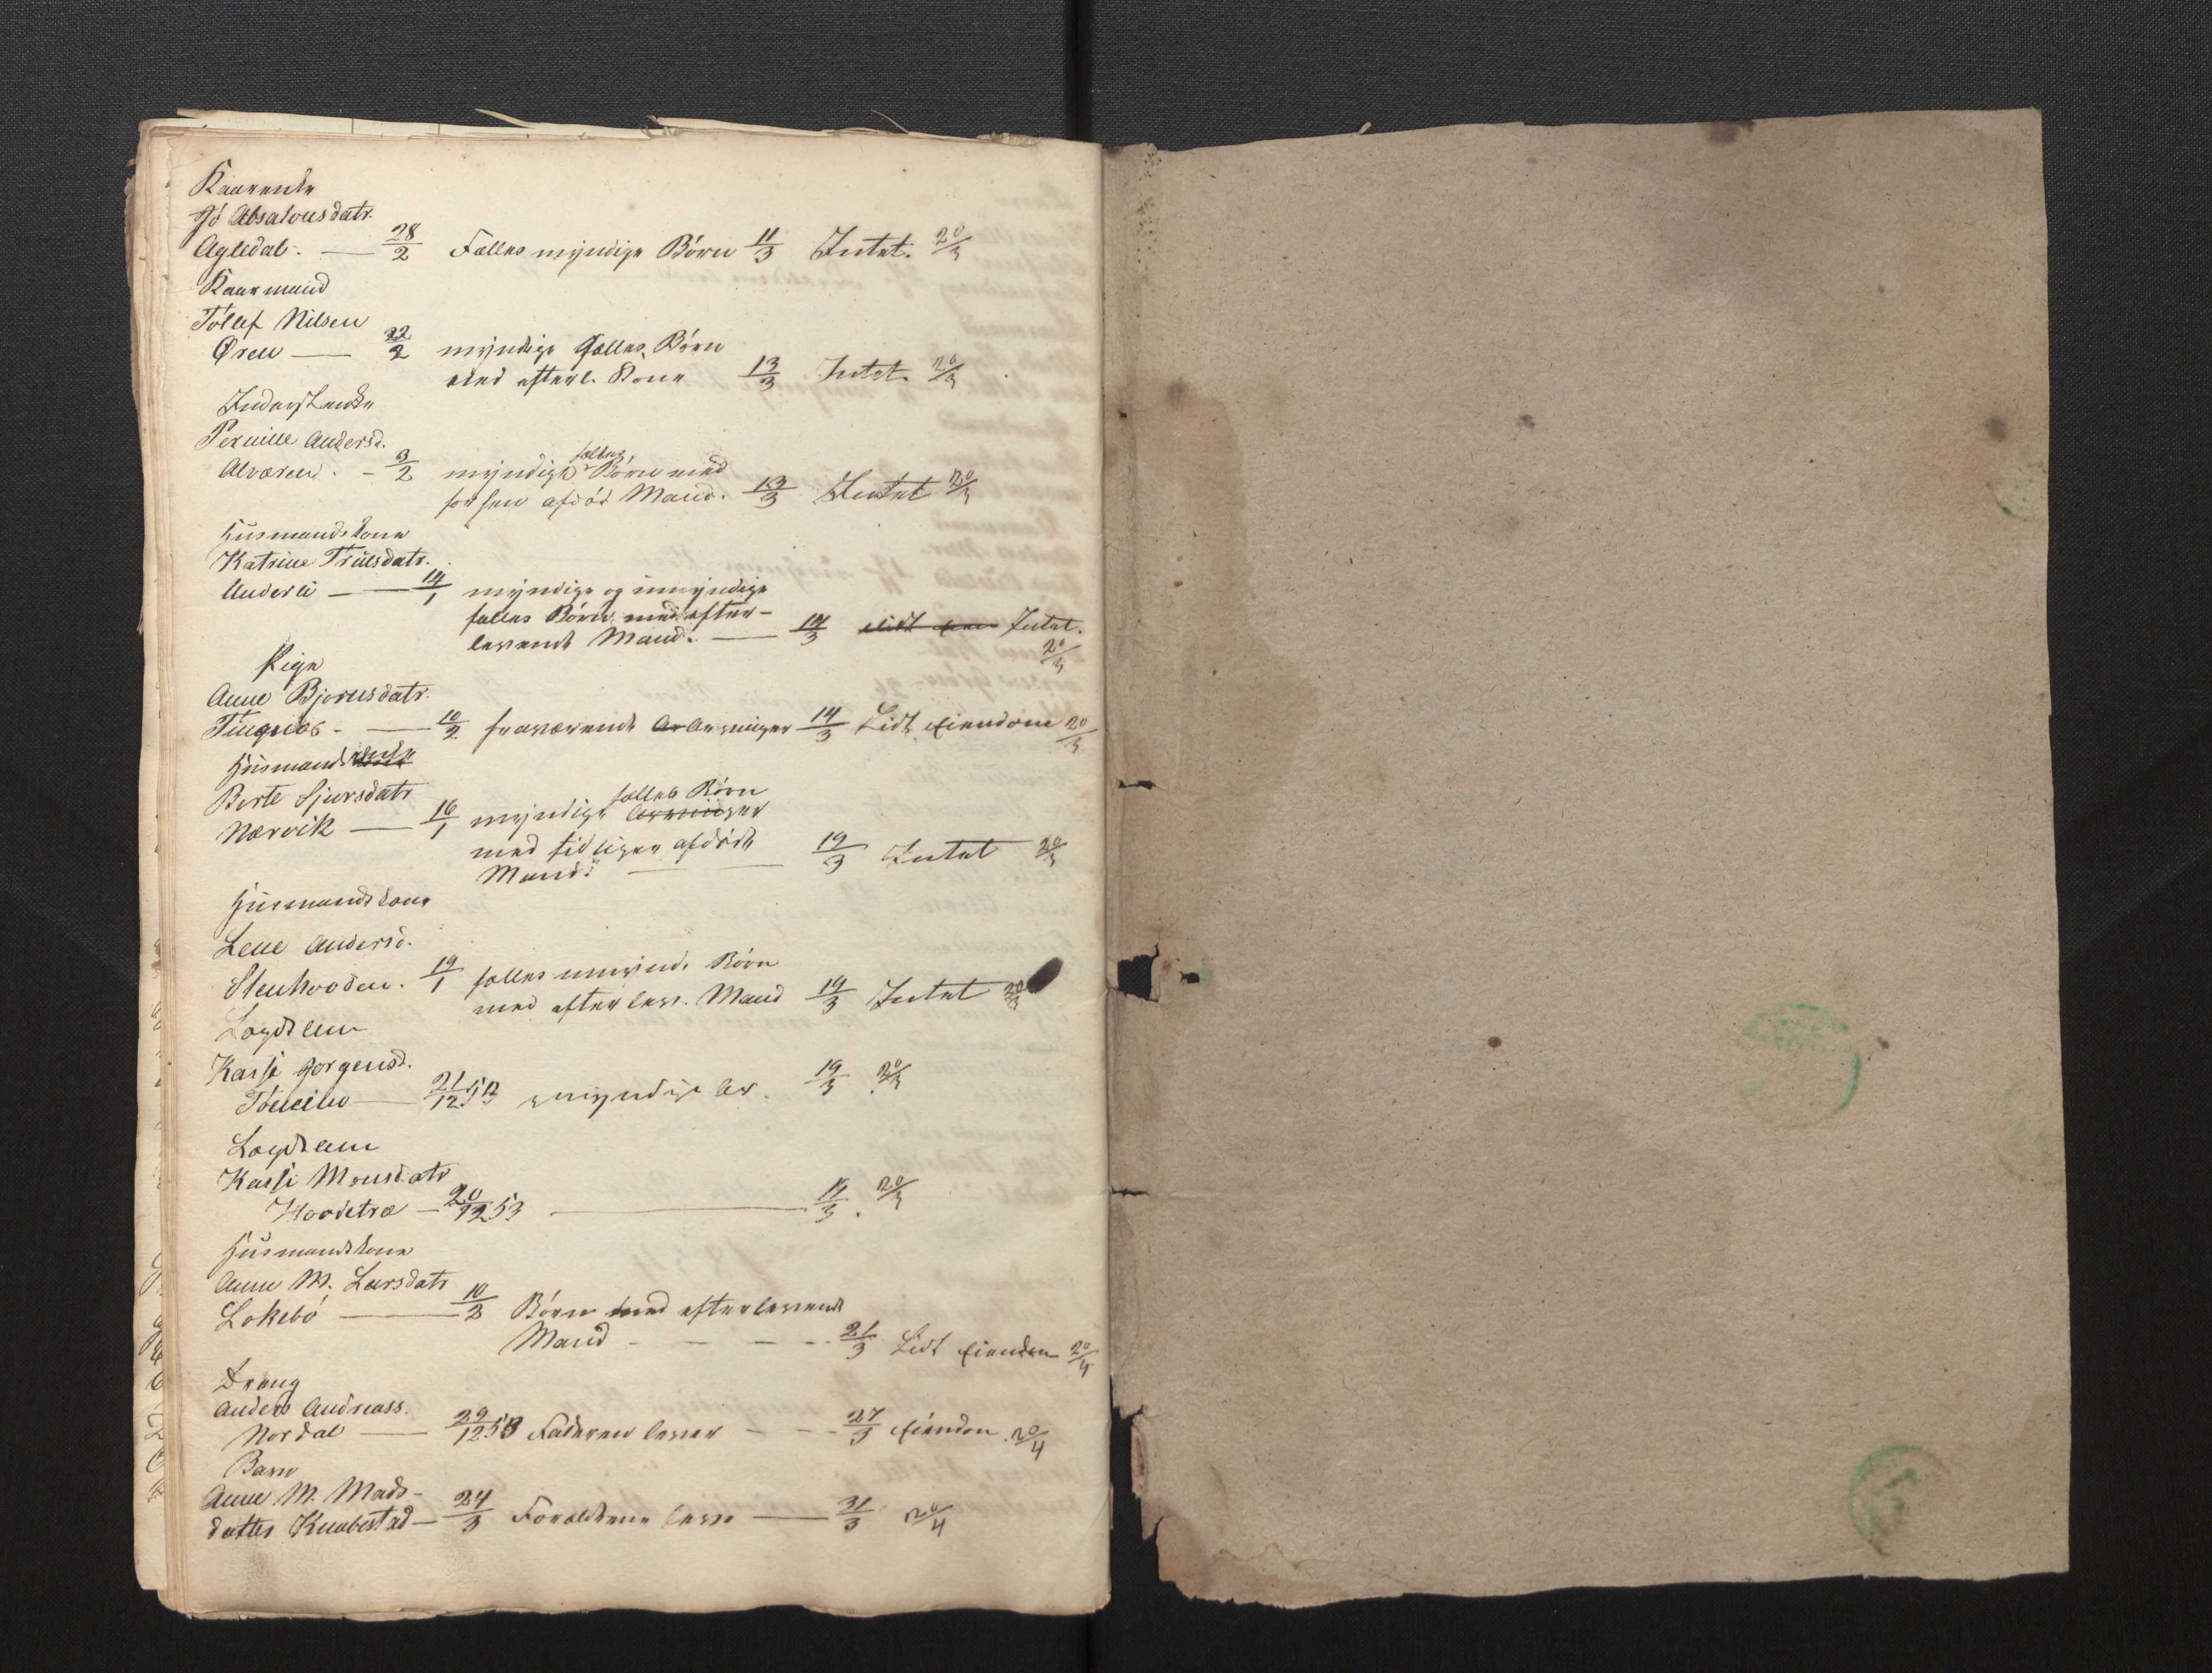 Kaarenke
Jó Absalonsdatr.
Agledal. — 28/2 Fælles myndige Børn 11/3 Intet. 20/3
Kaarmand
Tollef Nilsen
Øren — 22/2 myndige fælles Børn
med efterl. Kone 13/3 Intet. 20/3
Inderstenke
Pernille Andersd.
Alværen. - 3/2 myndige fælles Børn med
forhen afdød Mand. 13/3 Intet 20/3
Huusmandskone
Katrine Trulsdatr.
Anderli — 14/1 myndige og umyndige
fælles Børn med efter-
levende Mand. — 14/3 Lidt Intet.
20/3
Pige
Anne Bjornsdatr.
Tingnæs. — 10/2 fraværende Arvinger 14/3 Lidt Eiendom 20/3
Huusmandsenke
Berte Sjursdatr
Nærvik — 16/1 myndige fælles Børn Arvinger
med tidligere afdøde
Mand. — 19/3 Intet 20/3
Huusmandskone
Lene Andersd.
Stenhovden. 19/1 fælles umynd. Børn
med efterlev. Mand 19/3 Intet 20/3
Lægdslem
Kasse Jorgensd.
— 21/12 53 umyndige Ar. 19/3 20/3
Lægdslem
Kasse Monsdatr
Hovdetræ — 20/12 53 — 19/3. 20/3
Huusmandskone
Anne M. Larsdatr
Løkebø — 10/2 Børn med efterlevende
Mand - - - - 21/3 Lidt Eiendom 20/4
Dreng
Anders Andreass.
Nordal — 29/12 53 Faderen lever - - - 27/3 Eiendom 20/4
Barn
Anne M. Mads-
datter Knabestad — 24/3 Forældrene leve — 31/3 20/4